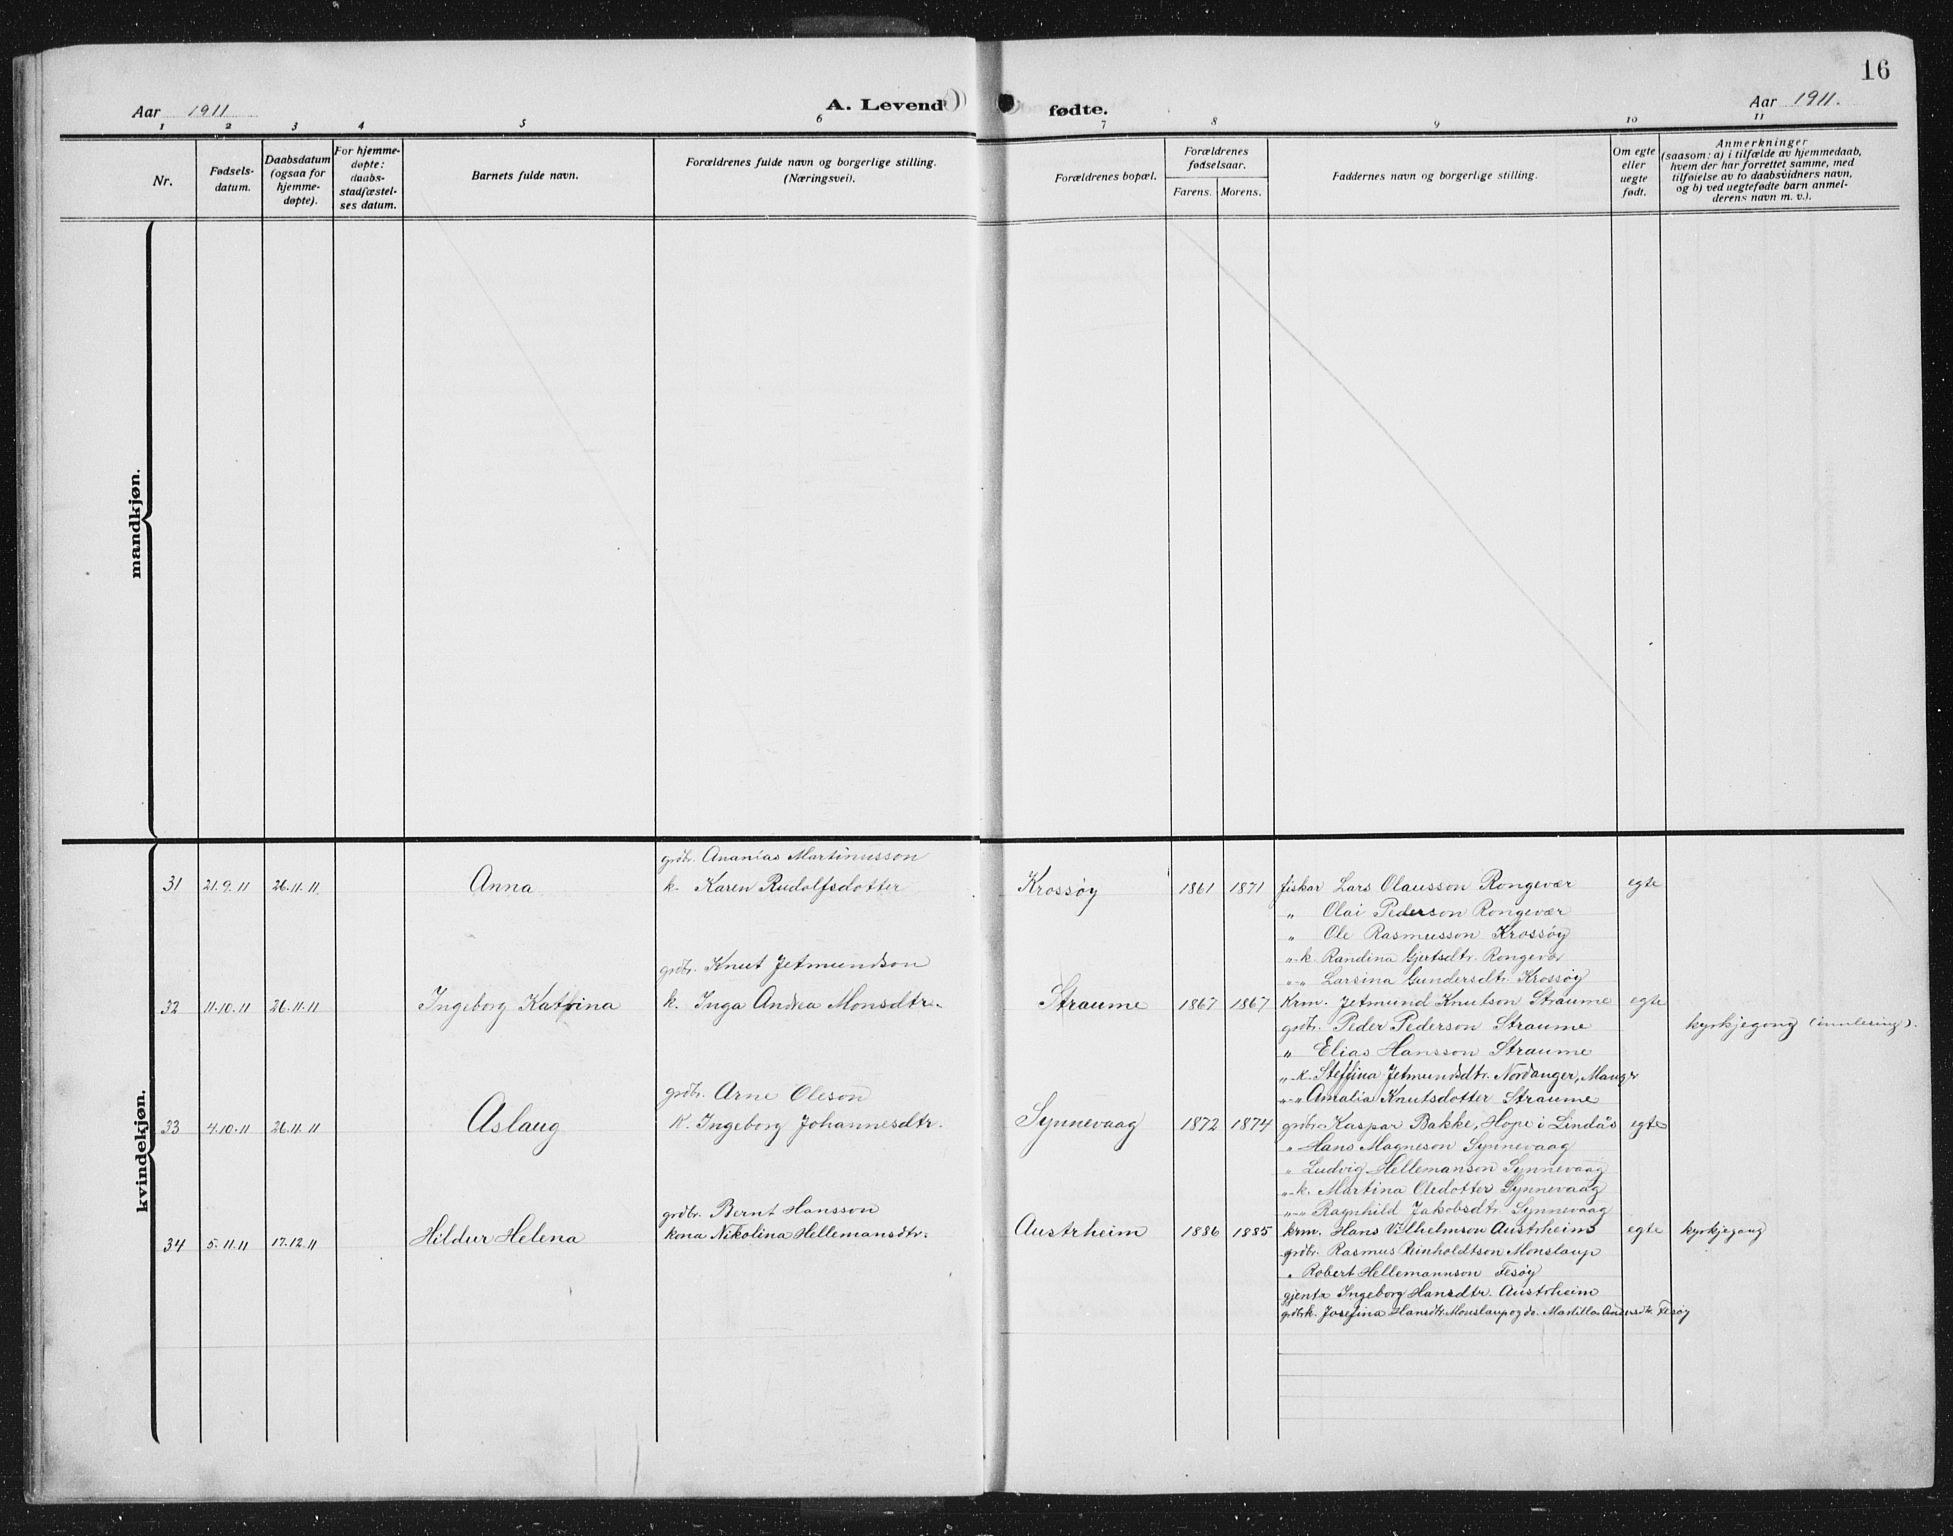 16
Aar 1911
A. Levend
fødte.
Aar 1911.
1 2 3 4 5 6 7 8 9 10 11
Nr.
Fødsels-
datum.
Daabsdatum
(ogsaa for
hjemme-
døpte).
For hjemme-
døpte:
daabs-
stadfæstel-
ses datum.
Barnets fulde navn.
Forældrenes fulde navn og borgerlige stilling.
(Næringsvei).
Forældrenes bopæl.
Forældrenes
fødselsaar.
Farens. Morens.
Faddernes navn og borgerlige stilling.
Om egte
eller
uegte
født.
Anmerkninger
(saasom: a) i tilfælde av hjemmedaab,
hvem der har forrettet samme, med
tilføielse av to daabsvidners navn,
og b) ved uegtefødte barn anmel-
derens navn m. v.).
mandkjøn.
kvindekjøn.
grdbr. Ananias Martinusson
31 21.9.11 26.11.11 Anna k. Karen Rudolfsdotter Krossøy 1861 1871 fiskar Lars Olausson Rongevær egte
" Olai Pederson Rongevær
" Ole Rasmusson Krossøy
"-k. Randina Gjertsdtr. Rongevær
"-" Larsina Gundersdtr. Krossøy
grdbr. Knut Jetmundson
32 11.10.11 26.11.11 Ingeborg Katrina k. Inga Andrea Monsdtr. Straume 1867 1867 Krm. Jetmund Knutson Straume egte
grdbr. Peder Pederson Straume kyrkjegong (innlesing).
" Elias Hansson Straume
"-k. Steffina Jetmundsdtr. Nordanger, Manger
"-" Amalia Knutsdotter Straume
grdbr. Arne Oleson
33 4.10.11 26.11.11 Aslaug k. Ingeborg Johannesdtr. Synnevaag 1872 1874 grdbr. Kaspar Bakke, Hope i Lindås egte
" Hans Magneson Synnevaag
" Ludvig Hellemanson Synnevaag
"-k. Martina Oledotter Synnevaag
"-" Ragnhild Jakobsdtr. Synnevaag
grdbr. Bernt Hansson
34 5.11.11 17.12.11 Hildur Helena kona Nikolina Hellemansdtr. Austrheim 1886 1885 krm. Hans Vilhelmson Austrheim egte kyrkjegang
grdbr. Rasmus Reinholdtson Monslaup
" Robert Hellemannson Fesøy
gjenta Ingeborg Hansdtr. Austrheim
grdbrk. Josefina Hansdtr. Monslaup og do. Martilla Andersdtr. Fesøy